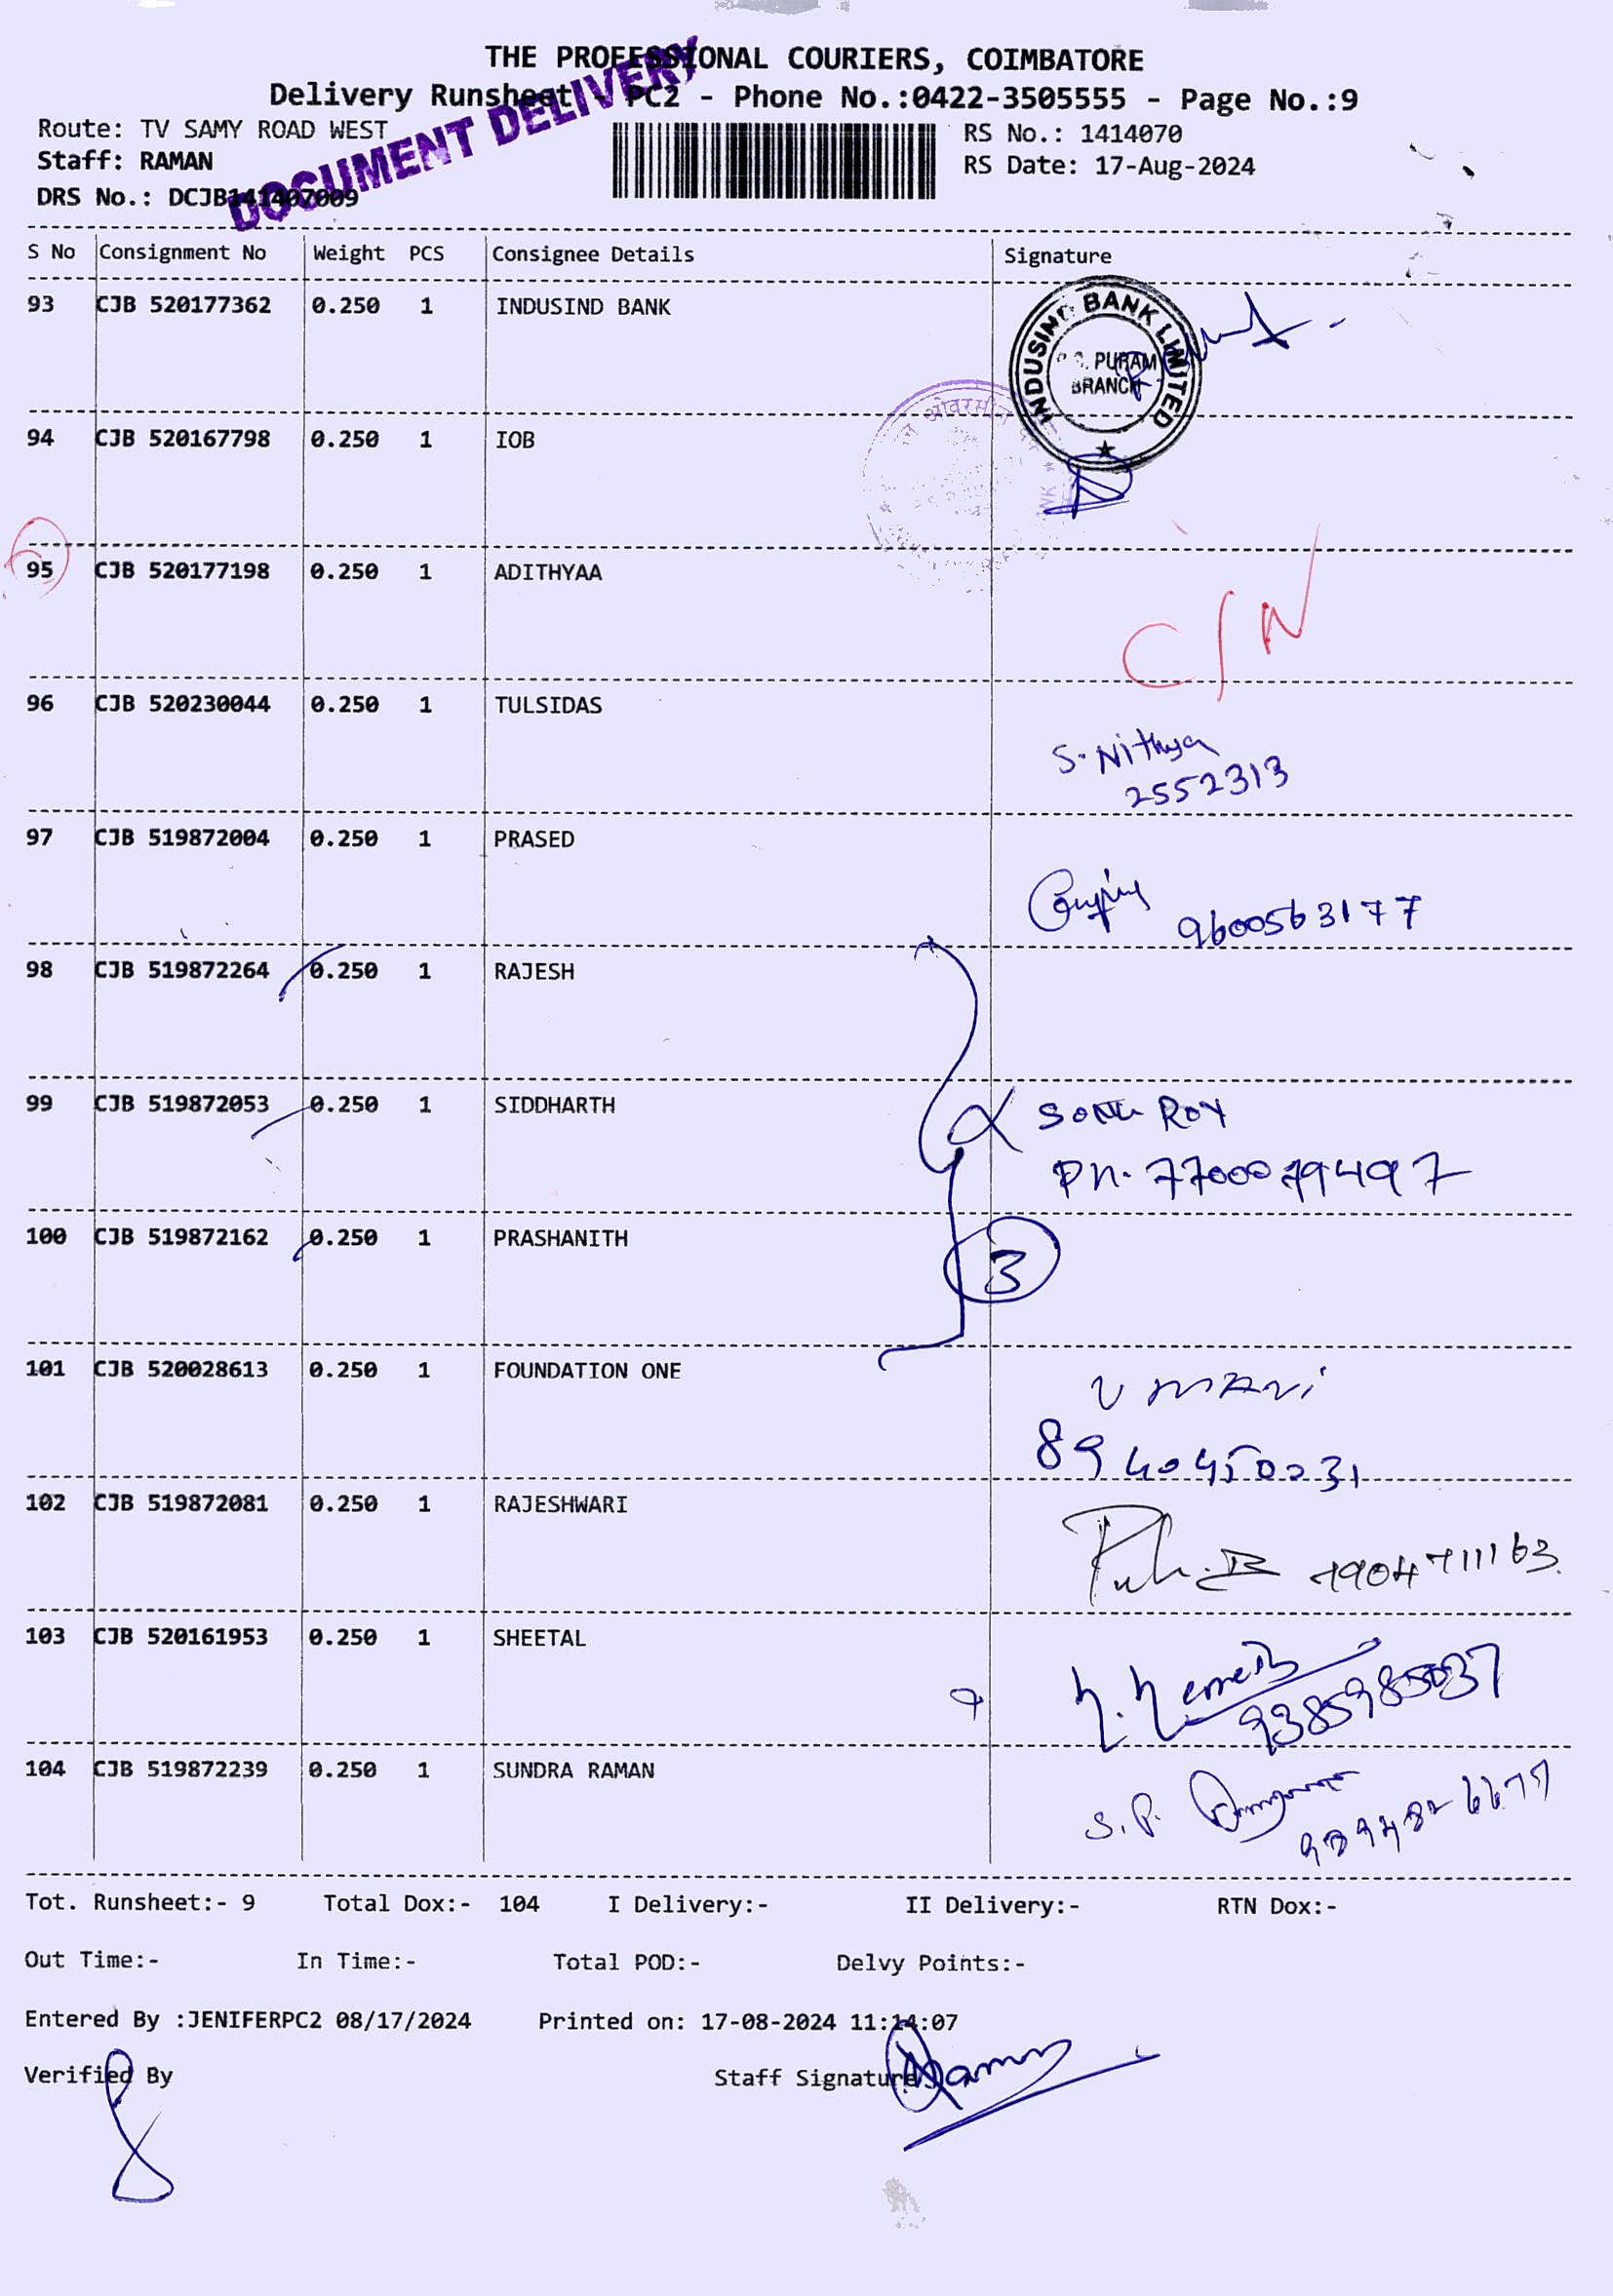 THE PROFESSIONAL COURIERS, COIMBATORE
Delivery Runsheet - PC2 - Phone No.:0422-3505555 - Page No.:9
DOCUMENT DELIVERY
Route: TV SAMY ROAD WEST
Staff: RAMAN
DRS No.: DCJB141407009
RS No.: 1414070
RS Date: 17-Aug-2024
S No Consignment No Weight PCS Consignee Details Signature
93 CJB 520177362 0.250 1 INDUSIND BANK
INDUSIND BANK LIMITED
PURAM
BRANCH
94 CJB 520167798 0.250 1 IOB
95 CJB 520177198 0.250 1 ADITHYAA
C/N
96 CJB 520230044 0.250 1 TULSIDAS
S. Nithya
2552313
97 CJB 519872004 0.250 1 PRASED
9600563177
98 CJB 519872264 0.250 1 RAJESH
99 CJB 519872053 0.250 1 SIDDHARTH
SONU ROY
Pn.
100 CJB 519872162 0.250 1 PRASHANITH
3
101 CJB 520028613 0.250 1 FOUNDATION ONE
V MANi
8940450031
102 CJB 519872081 0.250 1 RAJESHWARI
7904711163
103 CJB 520161953 0.250 1 SHEETAL
9385985037
104 CJB 519872239 0.250 1 SUNDRA RAMAN
S.P.
Tot. Runsheet:- 9 Total Dox:- 104 I Delivery:- II Delivery:- RTN Dox:-
Out Time:- In Time:- Total POD:- Delvy Points:-
Entered By :JENIFERPC2 08/17/2024 Printed on: 17-08-2024 11:14:07
Verified By Staff Signature
Raman